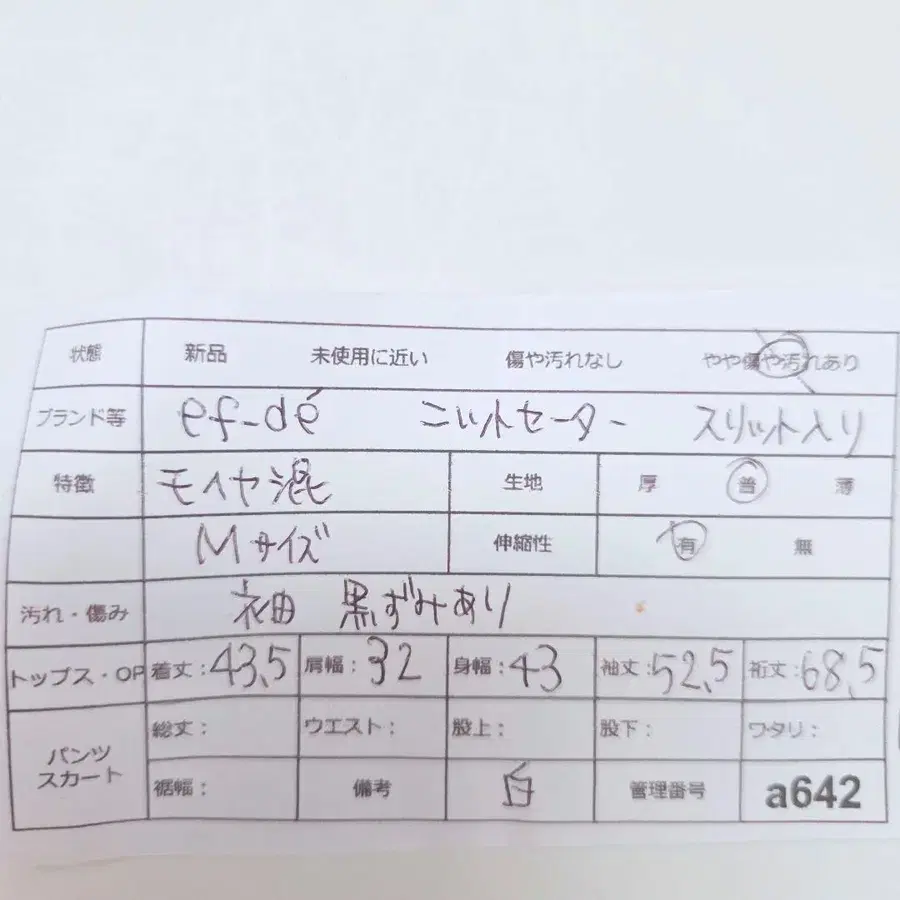 状態 新品 未使用に近い 傷や汚れなし やや傷や汚れあり
ブランド等 ef-dé ニットセーター スリット入り
特徴 モヘヤ混 生地 厚 普 薄
Mサイズ 伸縮性 有 無
汚れ・傷み 袖 黒ずみあり
トップス・OP 着丈:43,5 肩幅:32 身幅:43 袖丈:52,5 裄丈:68,5
パンツ スカート 総丈: ウエスト: 股上: 股下: ワタリ:
裾幅: 備考 白 管理番号 a642